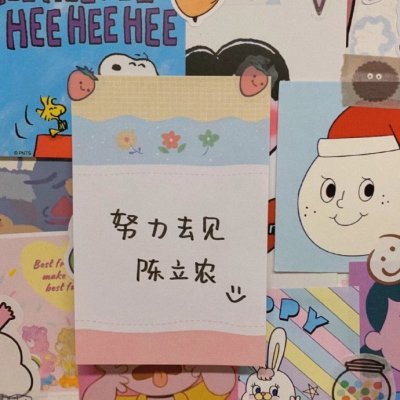 HEE HEE HEE
© PNTS
努力去见
陈立农
Best fr
make
best f
PPY